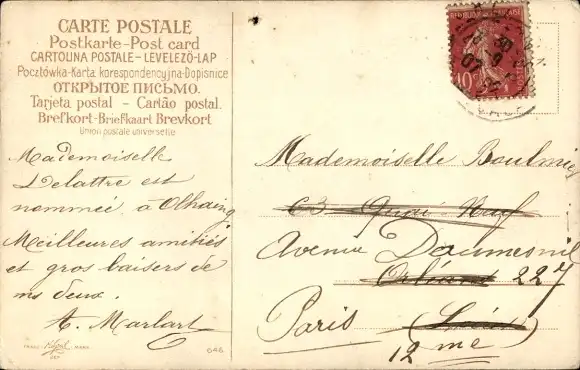 CARTE POSTALE
Postkarte - Post card
CARTOLINA POSTALE - LEVELEZÖ-LAP
Pocztówka - Karta korespondencyjna - Dopisnice
ОТКРЫТОЕ ПИСЬМО.
Tarjeta postal - Cartão postal.
Brefkort - Briefkaart Brevkort
Union postale universelle
Mademoiselle
Delattre est
nommée à Olhain
Meilleures amitiés
et gros baisers de
ns deux.
A. Marlart
646
RÉPUBLIQUE FRANÇAISE
10
Mademoiselle Boulmier
63 Quai Neuf
Avenue Daumesnil
Orléans 227
Paris
12 me